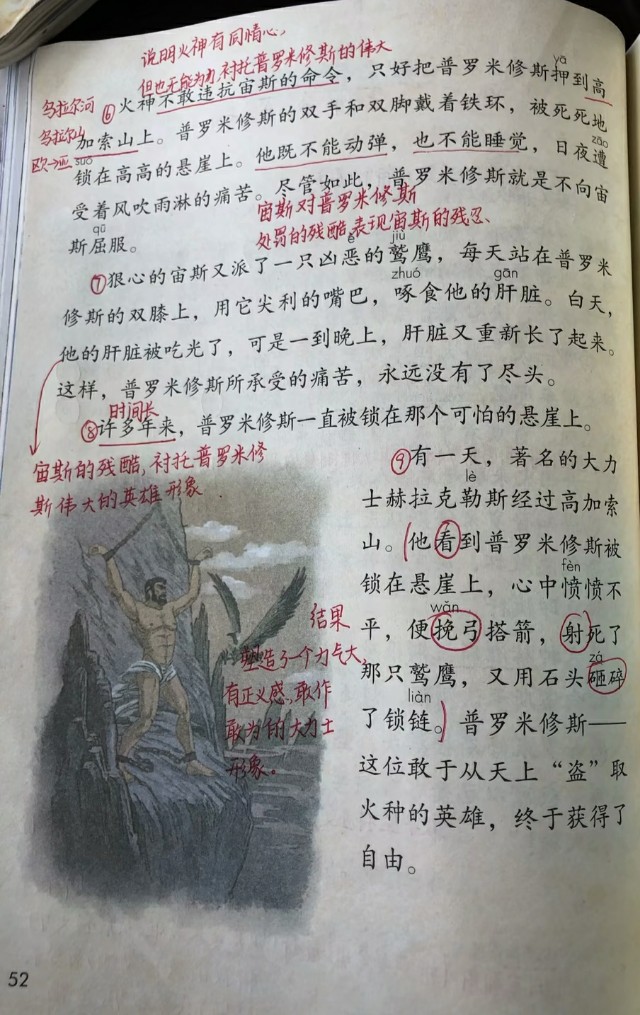 说明火神有同情心，
但也无能为力，衬托普罗米修斯的伟大
乌拉尔河
乌拉尔山
欧→亚
yā
⑥火神不敢违抗宙斯的命令，只好把普罗米修斯押到高
加索山上。普罗米修斯的双手和双脚戴着铁环，被死死地
suǒ zāo
锁在高高的悬崖上。他既不能动弹，也不能睡觉，日夜遭
受着风吹雨淋的痛苦。尽管如此，普罗米修斯就是不向宙
qū
斯屈服。
宙斯对普罗米修斯
处罚的残酷，表现宙斯的残忍。
è jiù
⑦狠心的宙斯又派了一只凶恶的鹫鹰，每天站在普罗米
zhuó gān
修斯的双膝上，用它尖利的嘴巴，啄食他的肝脏。白天，
他的肝脏被吃光了，可是一到晚上，肝脏又重新长了起来。
这样，普罗米修斯所承受的痛苦，永远没有了尽头。
时间长
⑧许多年来，普罗米修斯一直被锁在那个可怕的悬崖上。
宙斯的残酷，衬托普罗米修
斯伟大的英雄形象
⑨有一天，著名的大力
lè
士赫拉克勒斯经过高加索
山。他看到普罗米修斯被
fèn
锁在悬崖上，心中愤愤不
wǎn
平，便挽弓搭箭，射死了
zá
那只鹫鹰，又用石头砸碎
liàn
了锁链。普罗米修斯——
这位敢于从天上“盗”取
火种的英雄，终于获得了
自由。
结果
塑造了一个力气大，
有正义感，敢作
敢为的大力士
形象。
52